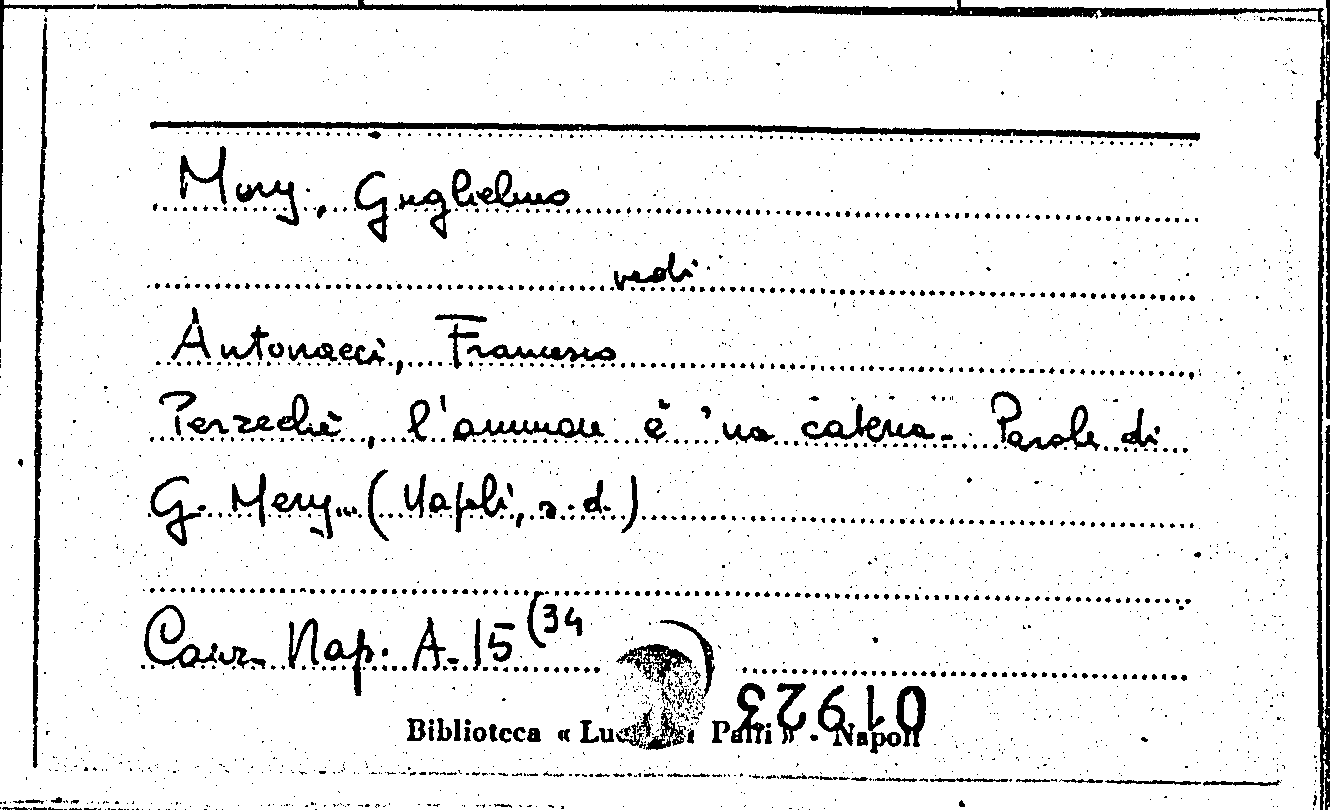 Mery, Guglielmo
vedi
Antonacci, Francesco
Perzechè, l'ammore è 'na catena. Parole di
G. Mery... (Napoli, s.d.)
Canz. Nap. A. 15 (34
Biblioteca « Palli » - Napoli